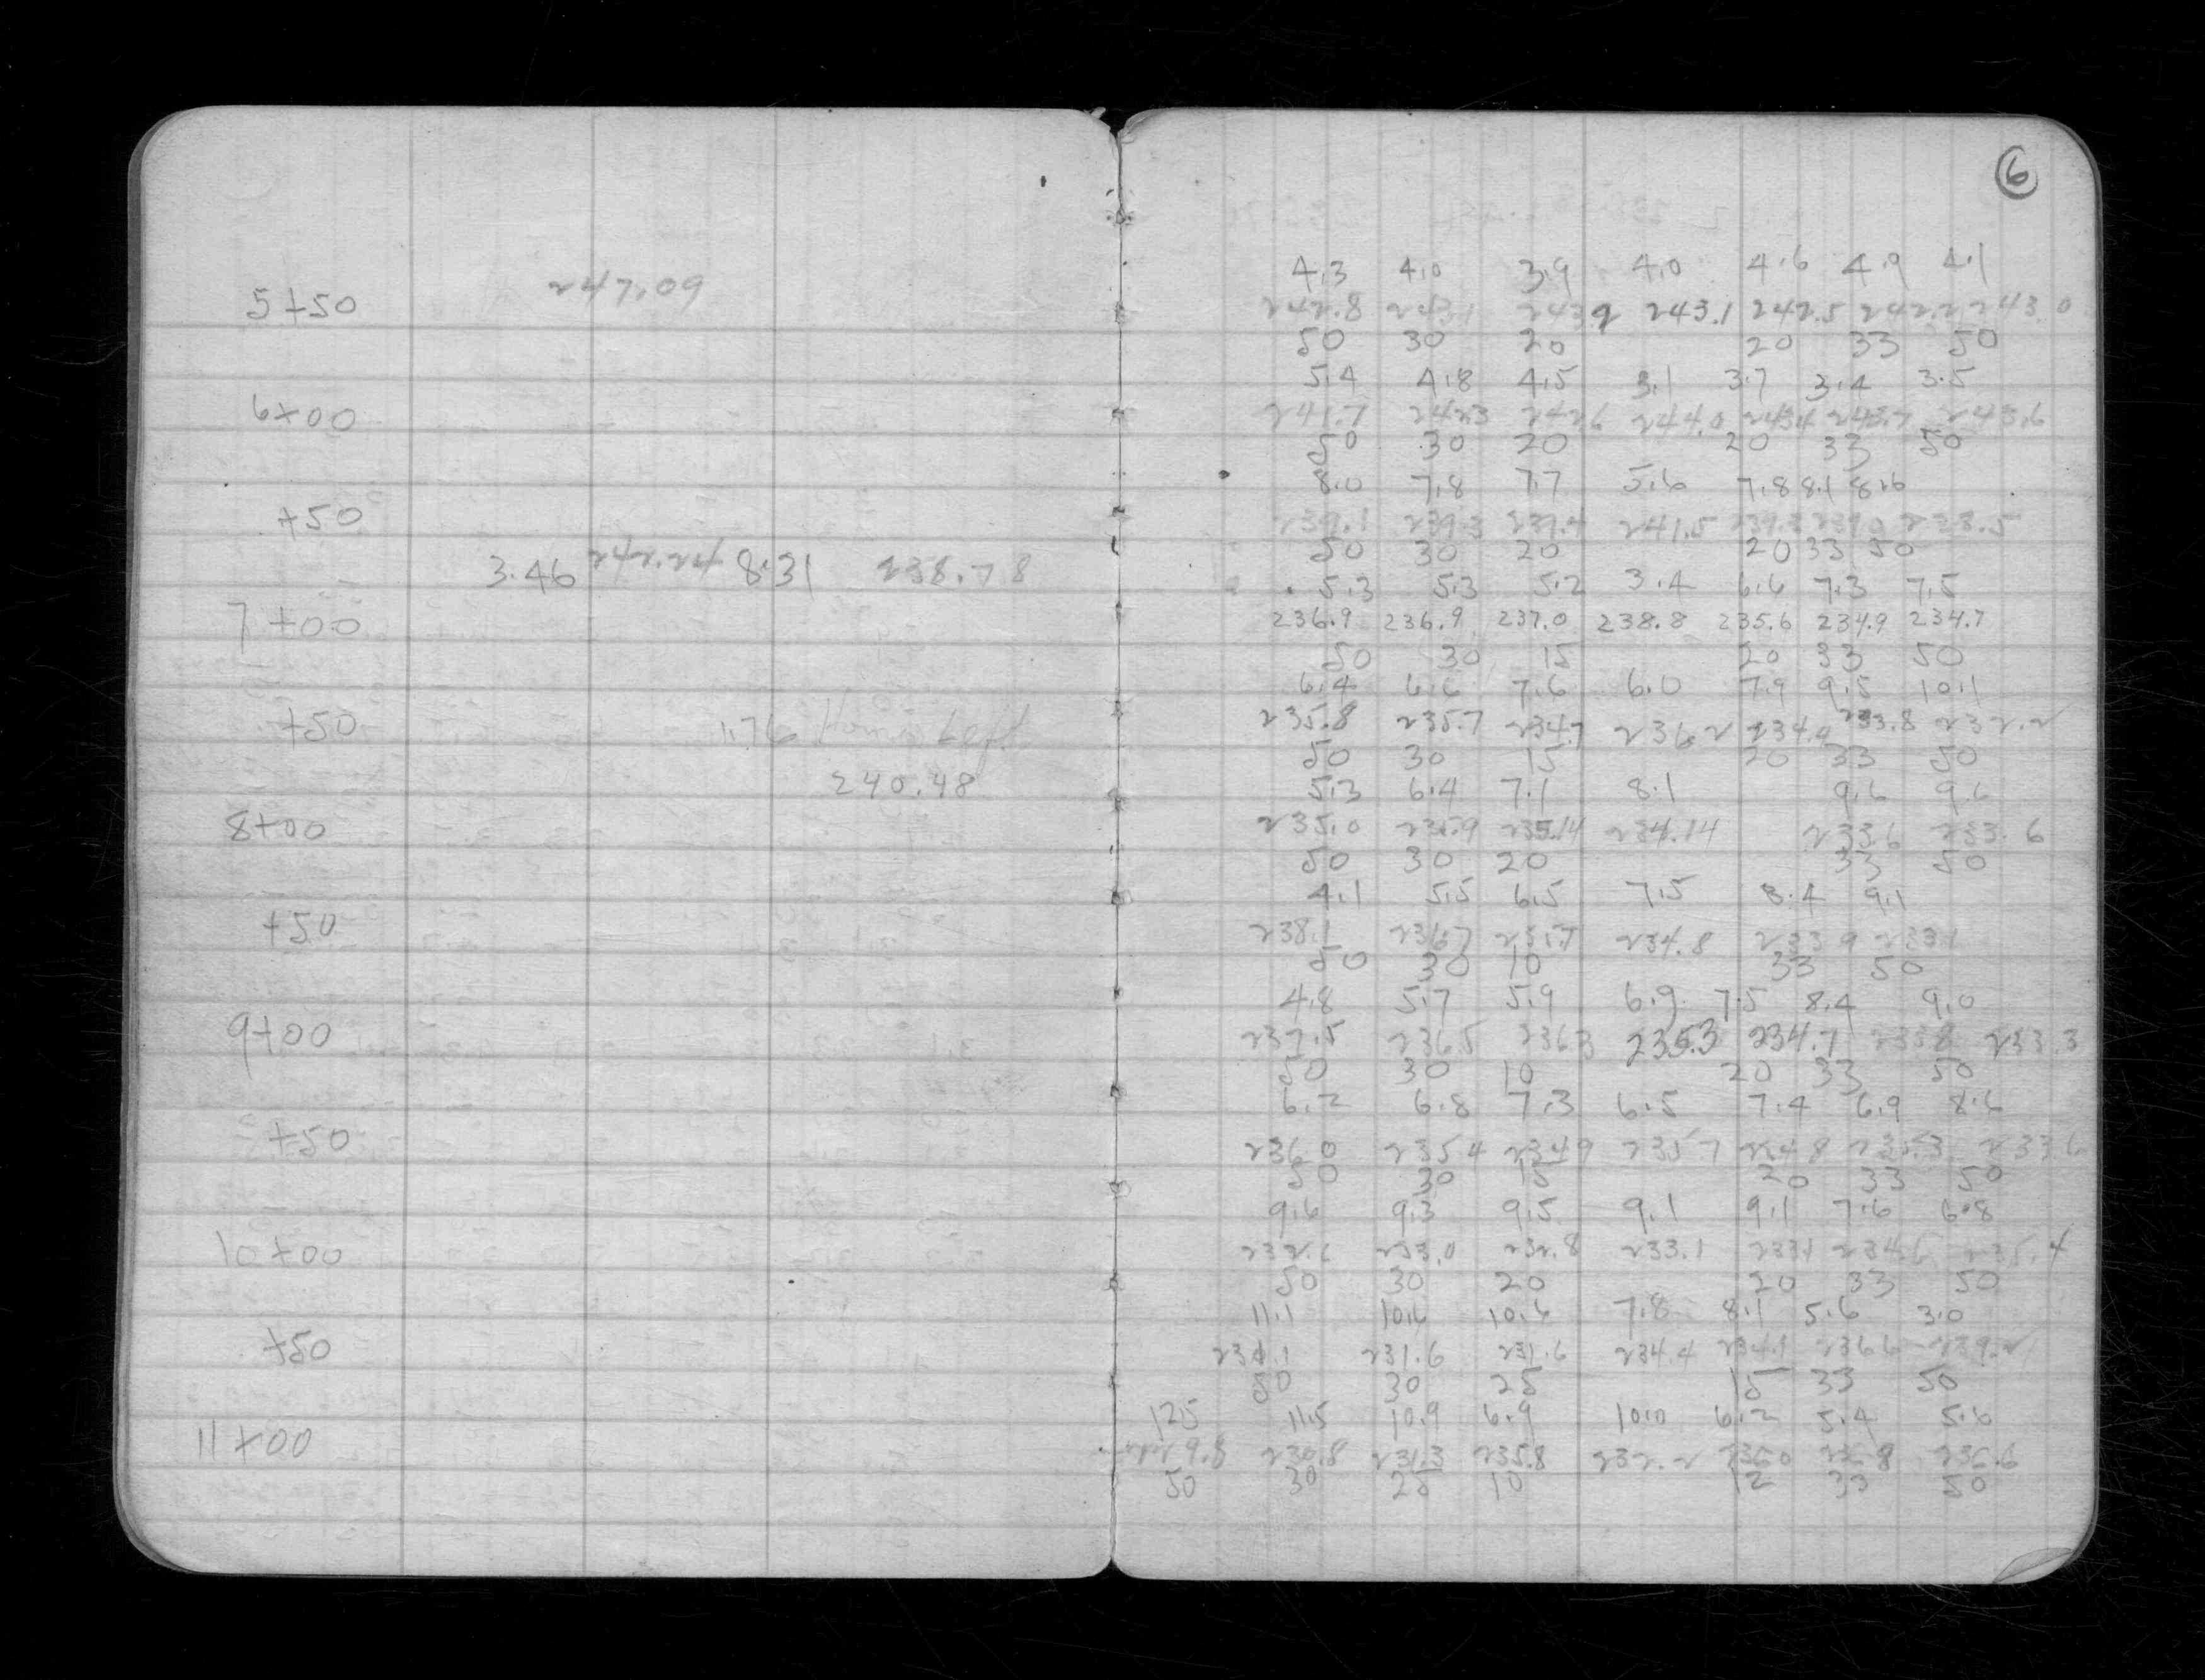 6
4.3 4.0 3.9 4.0 4.6 4.9 4.1
5+50 247.09 242.8 243.1 243.2 243.1 242.5 242.2 243.0
50 30 20 20 33 50
5.4 4.8 4.5 3.1 3.7 3.4 3.5
6+00 241.7 242.3 242.6 244.0 243.4 243.7 243.6
50 30 20 20 33 50
8.0 7.8 7.7 5.6 7.8 8.1 8.6
+50 239.1 239.3 239.4 241.5 239.3 239.0 238.5
50 30 20 20 33 50
3.46 242.24 8.31 238.78
5.3 5.3 5.2 3.4 6.6 7.3 7.5
7+00 236.9 236.9 237.0 238.8 235.6 234.9 234.7
50 30 15 20 33 50
6.4 6.6 7.6 6.0 7.9 9.5 10.1
+50 1.76 Left 235.8 235.7 234.7 236.2 234.4 233.8 232.2
50 30 15 20 33 50
240.48
5.3 6.4 7.1 8.1 9.6 9.6
8+00 235.0 235.9 235.14 234.14 233.6 233.6
50 30 20 33 50
4.1 5.5 6.5 7.5 8.4 9.1
+50 238.1 236.7 235.7 234.8 233.9 233.1
50 30 10 33 50
4.8 5.7 5.9 6.9 7.5 8.4 9.0
9+00 237.5 236.5 236.3 235.3 234.7 233.8 233.3
50 30 10 20 33 50
6.2 6.8 7.3 6.5 7.4 6.9 8.6
+50 236.0 235.4 234.9 235.7 234.8 235.3 233.6
50 30 15 20 33 50
9.6 9.3 9.5 9.1 9.1 7.6 6.8
10+00 232.6 233.0 232.8 233.1 233.1 234.6 235.4
50 30 20 20 33 50
11.1 10.6 10.6 7.8 8.1 5.6 3.0
+50 231.1 231.6 231.6 234.4 234.1 236.6 239.2
50 30 25 15 33 50
12.5 11.5 10.9 6.9 10.0 6.2 5.4 5.6
11+00 229.8 230.8 231.3 235.8 232.2 236.0 236.8 236.6
50 30 25 10 12 33 50